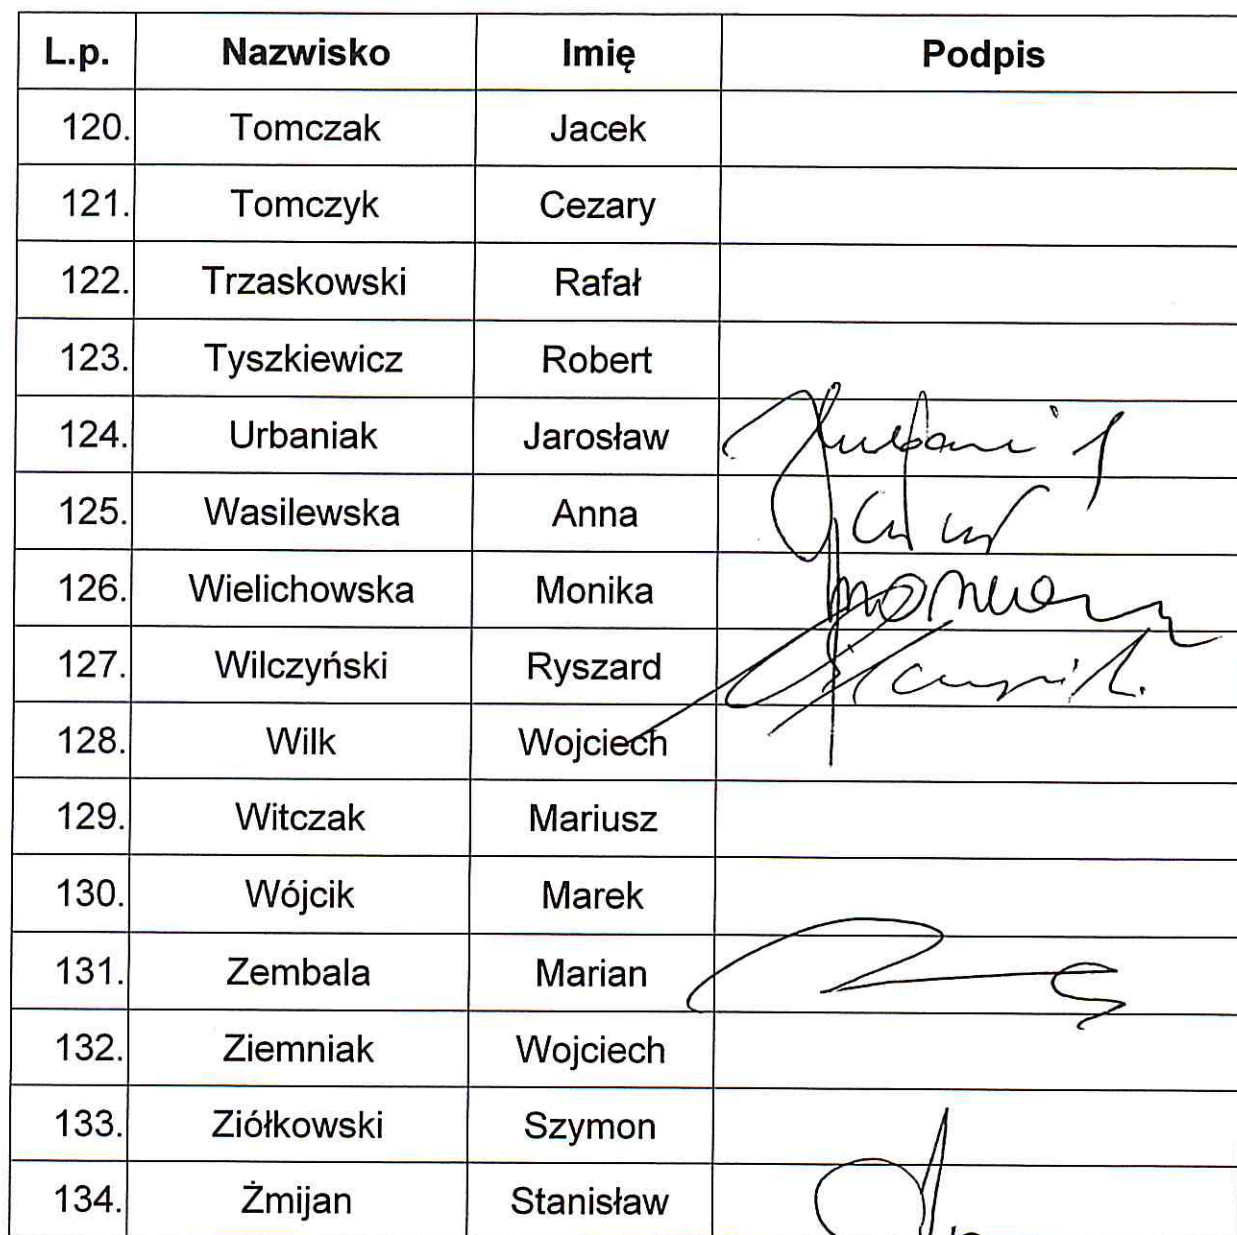 L.p. Nazwisko Imię Podpis
120. Tomczak Jacek
121. Tomczyk Cezary
122. Trzaskowski Rafał
123. Tyszkiewicz Robert
124. Urbaniak Jarosław
125. Wasilewska Anna
126. Wielichowska Monika
127. Wilczyński Ryszard
128. Wilk Wojciech
129. Witczak Mariusz
130. Wójcik Marek
131. Zembala Marian
132. Ziemniak Wojciech
133. Ziółkowski Szymon
134. Żmijan Stanisław